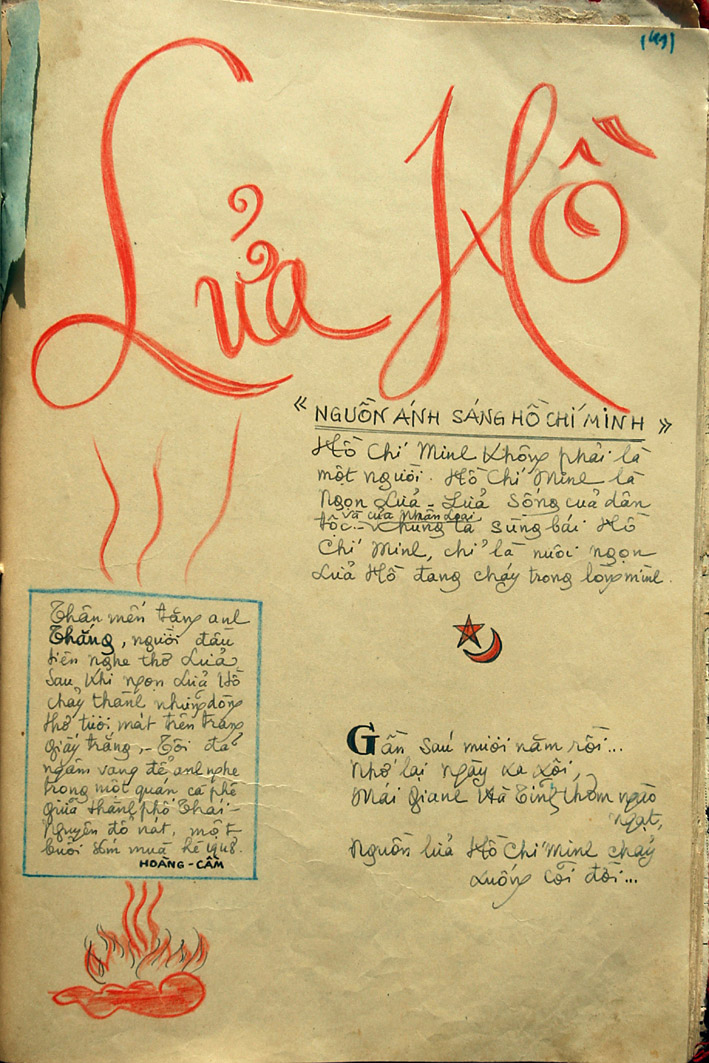 (49)
Lửa Hồ
« NGUỒN ÁNH SÁNG HỒ CHÍ MINH »
Hồ Chí Minh không phải là
một người. Hồ Chí Minh là
Ngọn Lửa - Lửa sống của dân
tộc và của nhân loại - Chúng ta sùng bái Hồ
Chí Minh, chỉ là nuôi ngọn
Lửa Hồ đang cháy trong lòng mình.
Thân mến tặng anh
Thắng, người đầu
tiên nghe thơ Lửa,
sau khi ngọn Lửa Hồ
chảy thành những dòng
thơ tươi mát trên trang
giấy trắng, - Tôi đã
ngâm vang để anh nghe
trong một quán cà phê
giữa thành phố Thái -
Nguyên đổ nát, một
buổi sớm mùa hè 1948.
HOÀNG - CẦM
Gần sáu mươi năm rồi...
Nhớ lại ngày xa xôi,
Mái gianh Hà Tĩnh thơm ngào
ngạt,
Nguồn lửa Hồ Chí Minh chảy
xuống cõi đời...